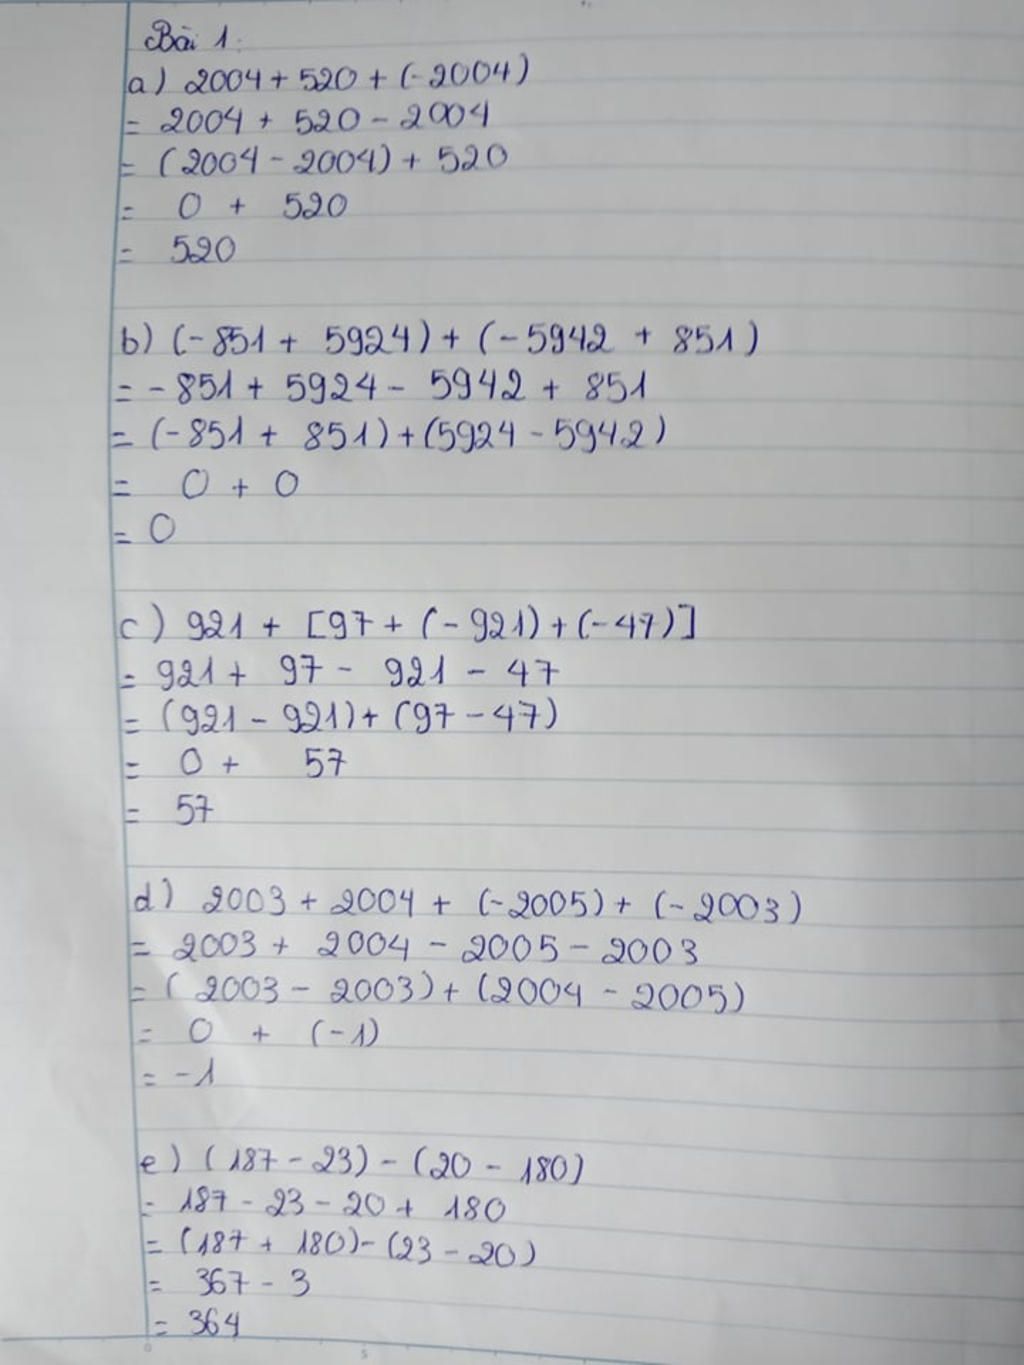 Bài 1:
a) 2004 + 520 + (-2004)
= 2004 + 520 - 2004
= (2004 - 2004) + 520
= 0 + 520
= 520
b) (-851 + 5924) + (-5942 + 851)
= -851 + 5924 - 5942 + 851
= (-851 + 851) + (5924 - 5942)
= 0 + 0
= 0
c) 921 + [97 + (-921) + (-47)]
= 921 + 97 - 921 - 47
= (921 - 921) + (97 - 47)
= 0 + 57
= 57
d) 2003 + 2004 + (-2005) + (-2003)
= 2003 + 2004 - 2005 - 2003
= (2003 - 2003) + (2004 - 2005)
= 0 + (-1)
= -1
e) (187 - 23) - (20 - 180)
= 187 - 23 - 20 + 180
= (187 + 180) - (23 - 20)
= 367 - 3
= 364
0 5